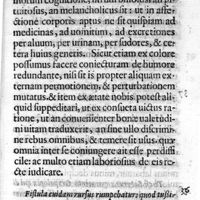 morum cognitionem, an sanguinolentus pi
tuitosus, an melancholicus sit: et an in affe
ctione corporis aptus ne sit quispiam ad
medicinas, ad uomitum, ad excretiones
per aluum, per urinam, per sudores, & ce
tera huius generis. Sicut etiam ex colore
possumus facere coniecturam de humore
redundante, nisi sit is propter aliquam ex
ternam permotionem, & perturbationem
mutatus. & item ex ætate nobis potest ali-
quid suppeditari, ut ex consueta uictus ra
tione, ut an conuenienter bonæ ualetudi
ni uitam traduxerit, an sine ullo discrimi
ne rebus omnibus, & temere sit usus. quæ
omnia inter se coniungere ait esse perdiffi
cile: ac multo etiam laboriosius de eis re
cte iudicare.
Fistula cuidam rursus rumpebatur: quod tussi-
36